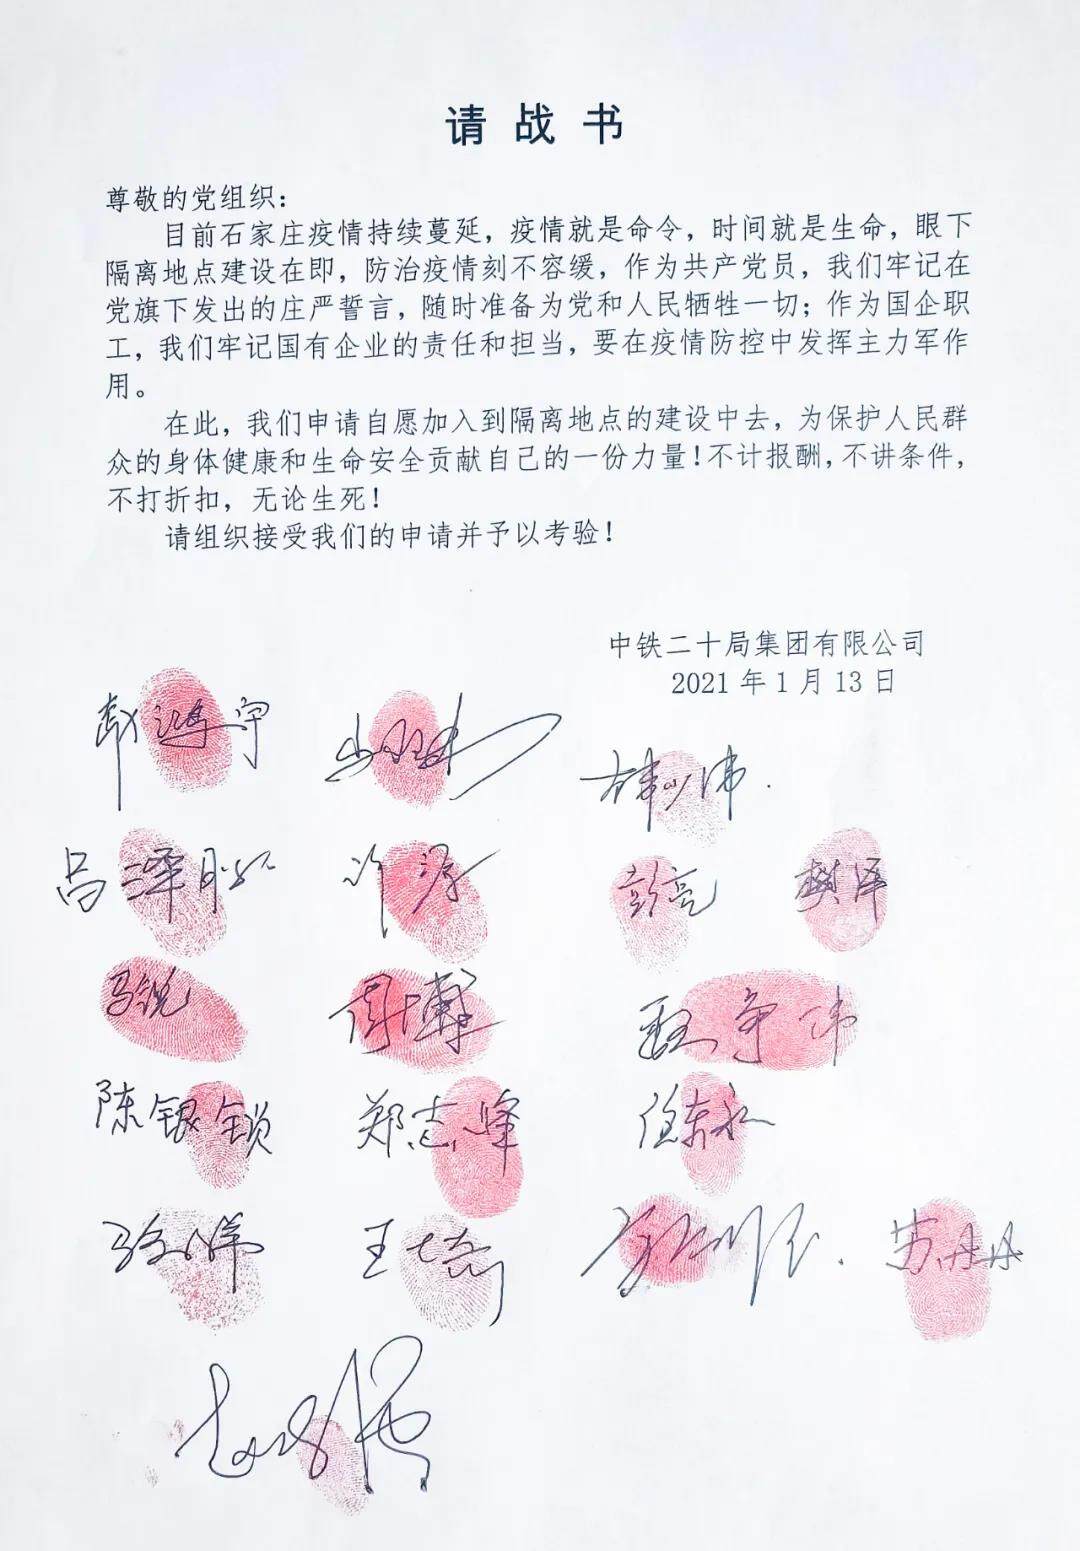 请战书
尊敬的党组织：
目前石家庄疫情持续蔓延，疫情就是命令，时间就是生命，眼下
隔离地点建设在即，防治疫情刻不容缓，作为共产党员，我们牢记在
党旗下发出的庄严誓言，随时准备为党和人民牺牲一切；作为国企职
工，我们牢记国有企业的责任和担当，要在疫情防控中发挥主力军作
用。
在此，我们申请自愿加入到隔离地点的建设中去，为保护人民群
众的身体健康和生命安全贡献自己的一份力量！不计报酬，不讲条件，
不打折扣，无论生死！
请组织接受我们的申请并予以考验！
中铁二十局集团有限公司
2021年1月13日
彭亮 樊泽
马锐 周博
陈银锁 郑志峰 任东永
王 苏丹丹